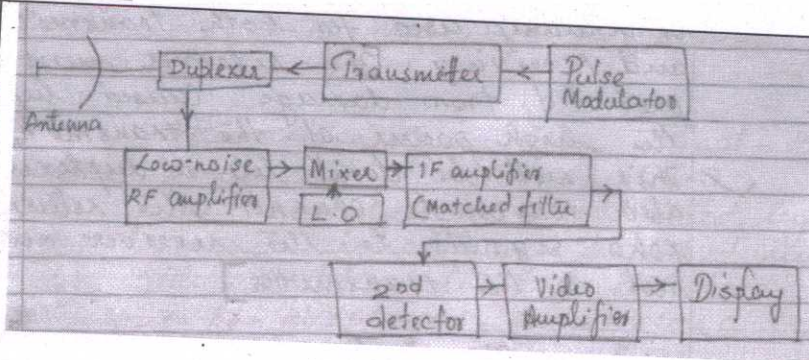 Duplexer
Transmeter
Pulse
Modulator
Antenna
Low-noise
RF amplifier
Mixer
IF amplifier
(Matched filte
L.O
2nd
detector
Video
Amplifier
Display